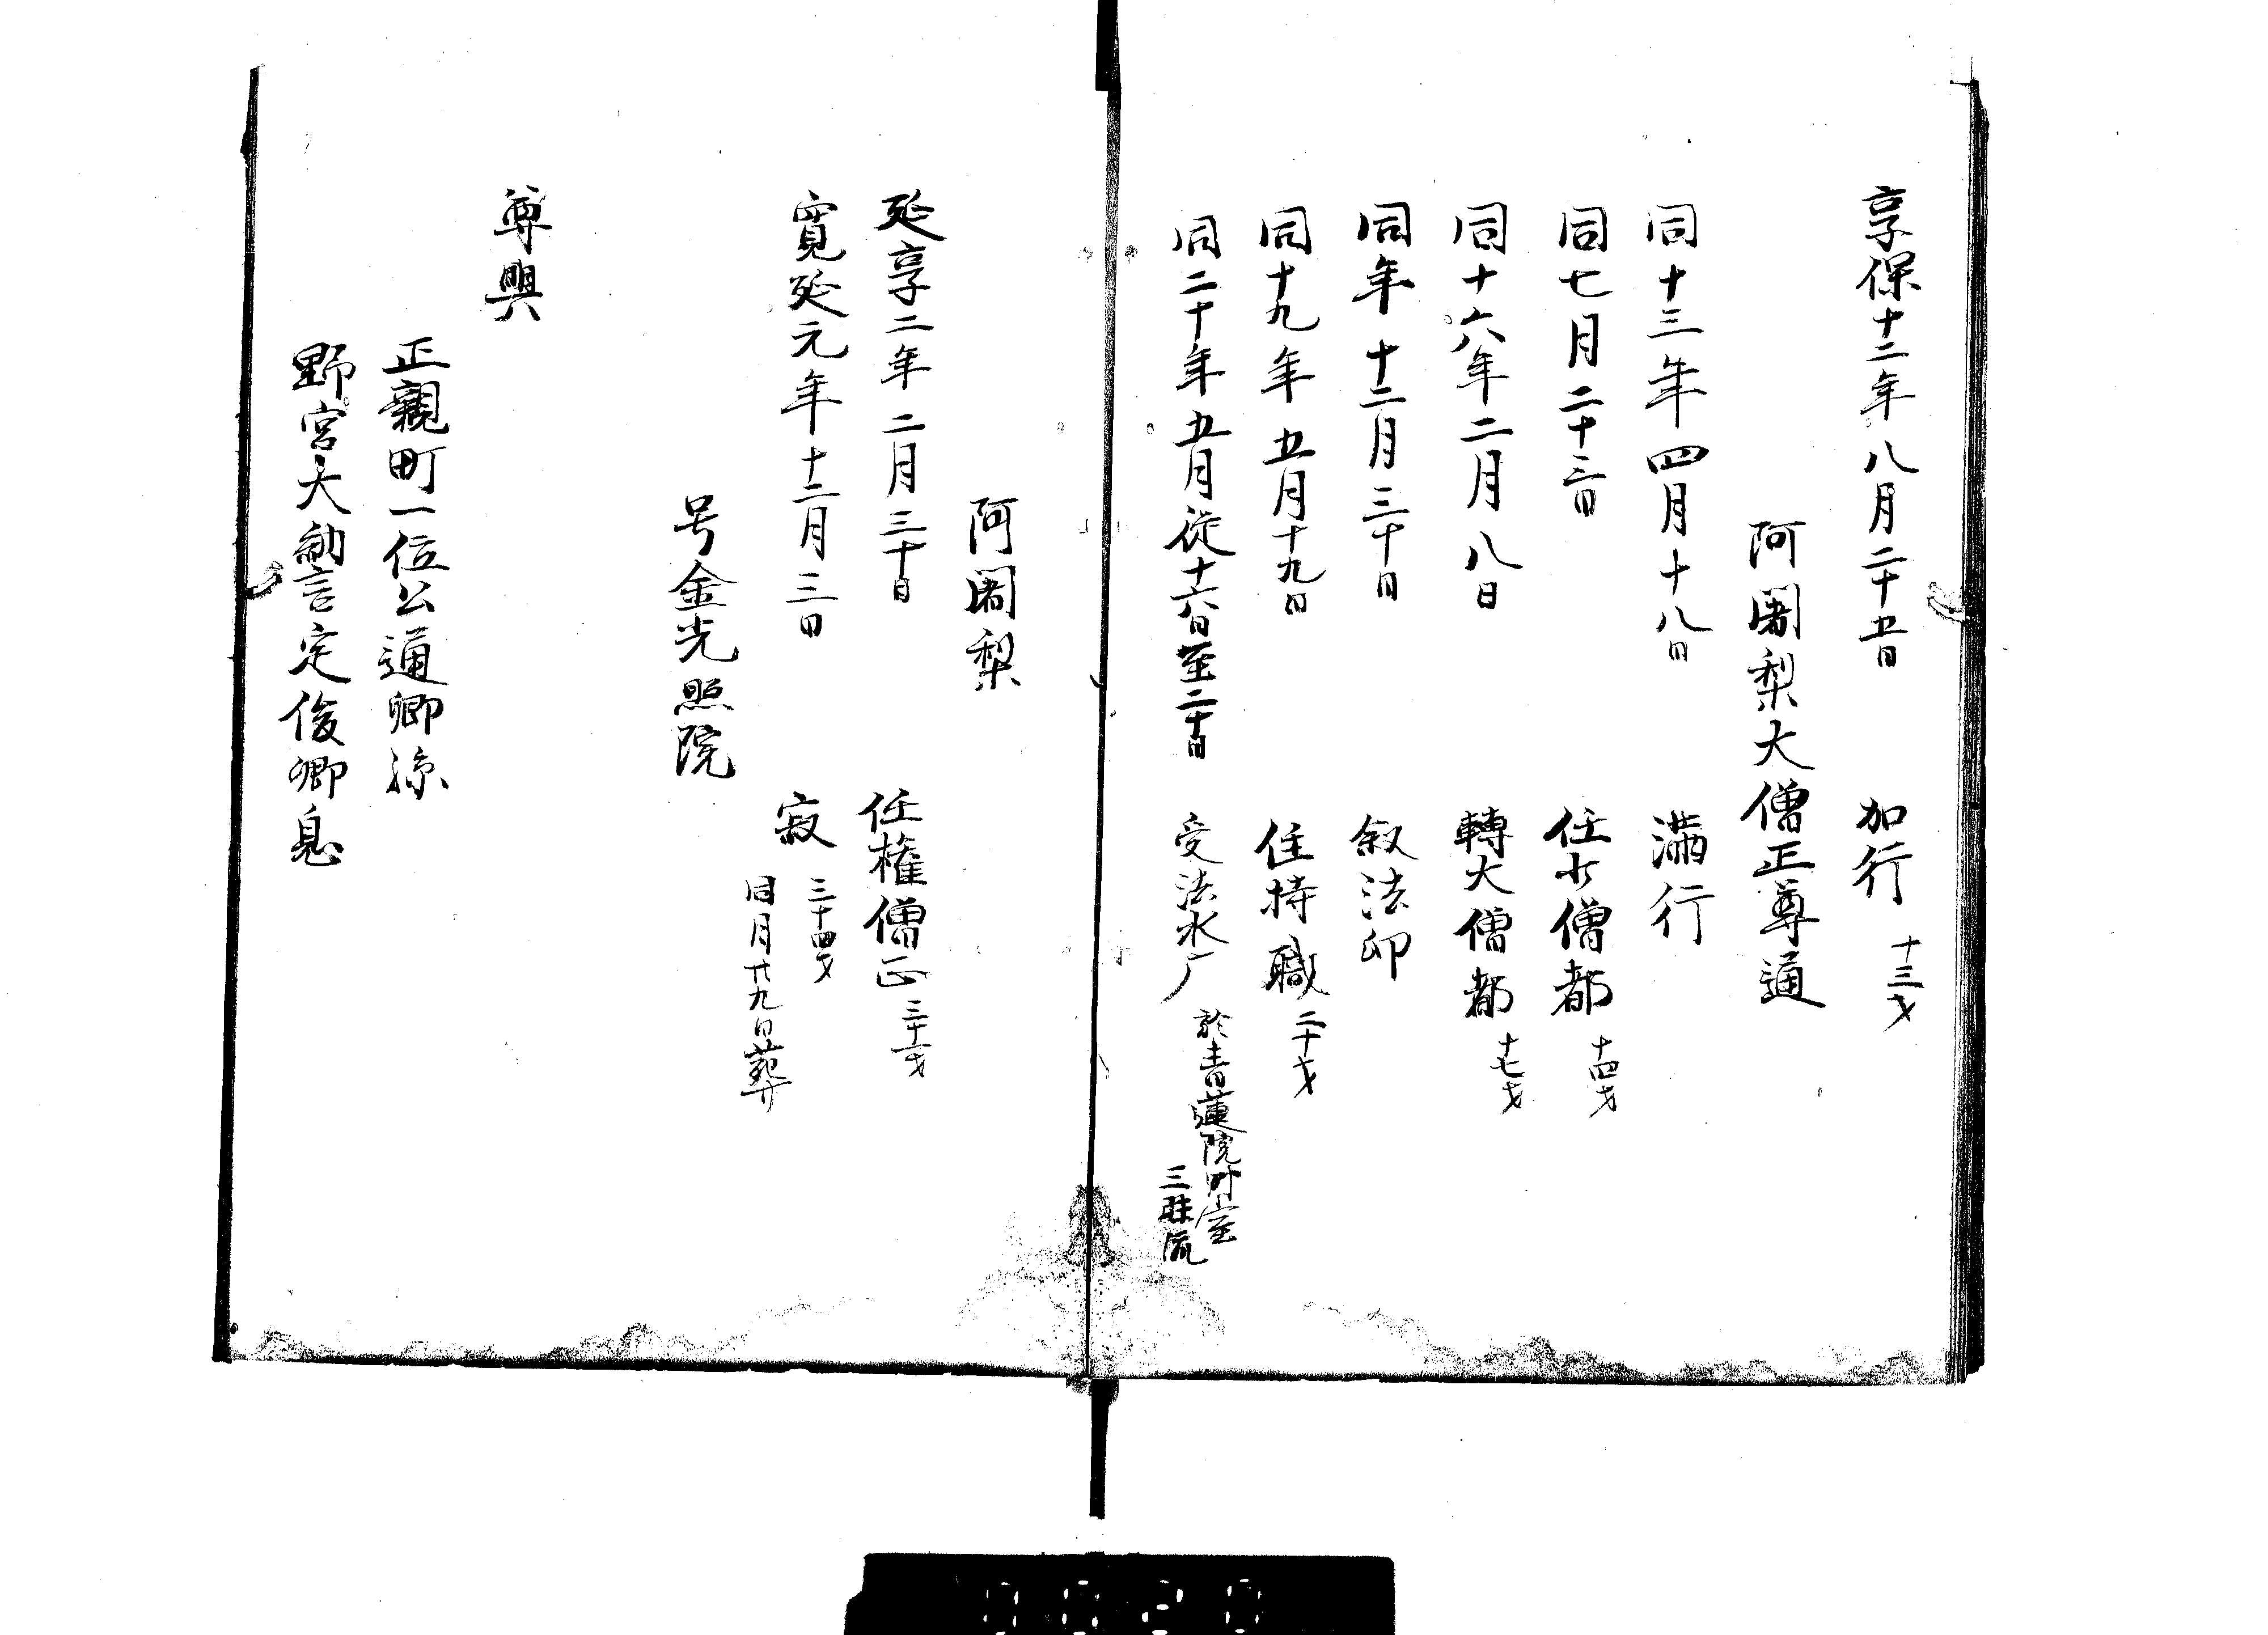 享保十二年八月二十五日　加行　十三才
阿闍梨大僧正尊通
同十三年四月十八日　満行
同七月二十三日　任少僧都　十四才
同十六年二月八日　轉大僧都　十七才
同年十二月三十日　叙法印
同十九年五月十九日　住持職　二十才
同二十年五月從十六日至二十日　受法水厂　於青蓮院御室
三昧流
阿闍梨
延享二年二月三十日　任権僧正　三十一才
寛延元年十二月三日　寂　三十四才
同月廿九日葬
号金光照院
尊興
正親町一位公通卿孫
野宮大納言定俊卿息